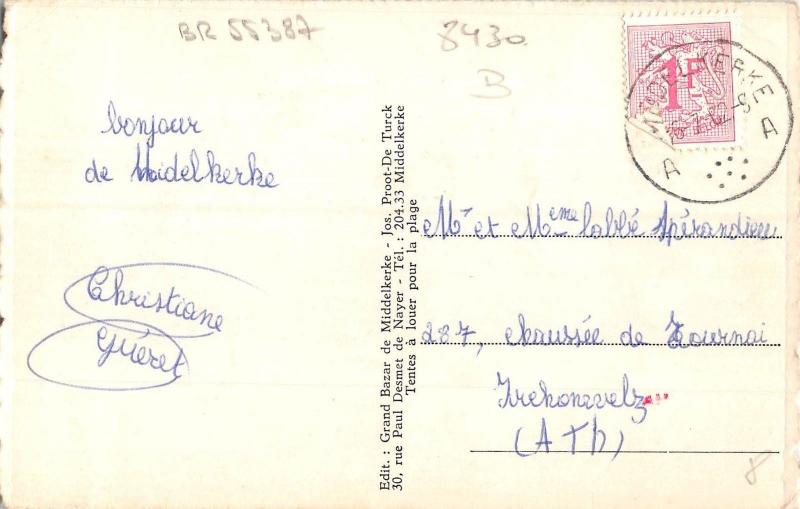 BR 55387
8430
B
bonjour
de Midelkerke
Christiane
Guéret
Edit. : Grand Bazar de Middelkerke - Jos. Proot-De Turck
30, rue Paul Desmet de Nayer - Tél. : 204.33 Middelkerke
Tentes à louer pour la plage
1F
BELGIE
MIDDELKERKE
A A
Mr et Mme Labbé Spérandieu
287, chaussée de Tournai
Irchonwelz
(Ath)
8